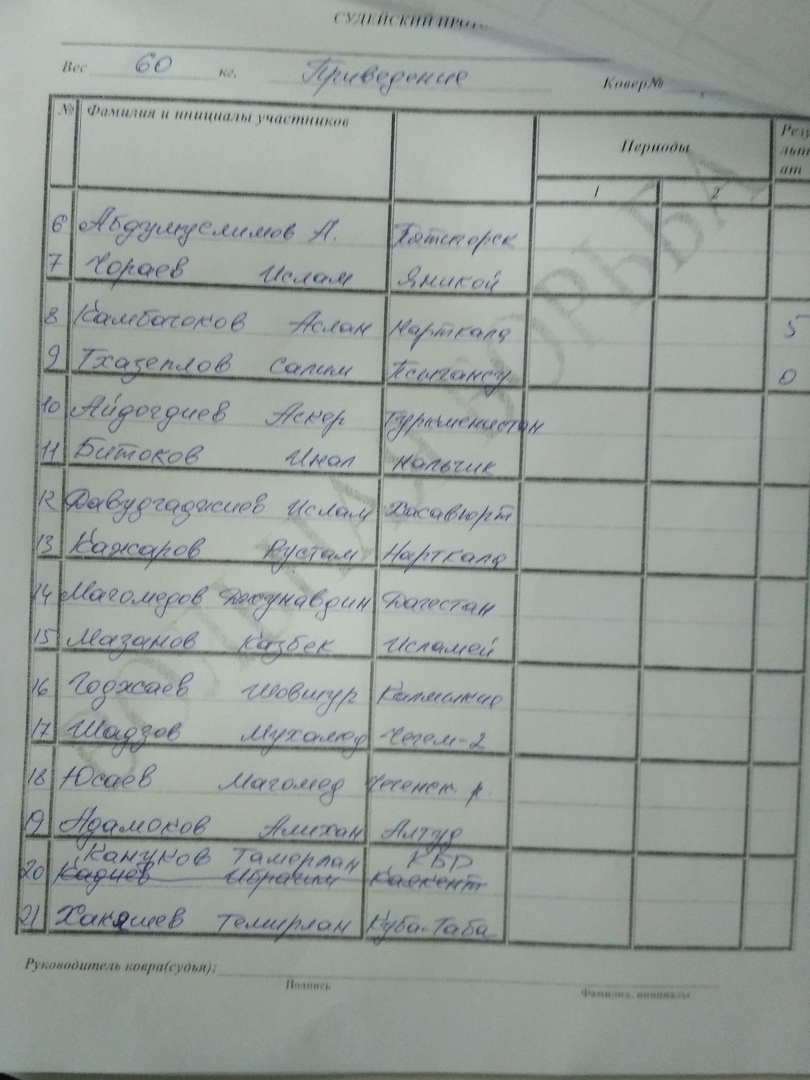 СУДЕЙСКИЙ
Вес 60 кг. Приведение Ковер№
№ Фамилия и инициалы участников Периоды Резу
льт
ат
1 2
6 Абдулмуслимов А. Пятигорск
7 Чораев Ислам Яникой
8 Камбачоков Аслан Нарткала 5
9 Тхазеплов Салим Псыгансу 0
10 Айдогдиев Аскер Туркменистан
11 Битоков Инал Нальчик
12 Давудгаджиев Ислам Хасавюрт
13 Кажаров Рустам Нарткала
14 Магомедов Дагестан
15 Мазанов Казбек Исламей
16 Годжаев Калмыкия
17 Шадзов Мухамед Чегем-2
18 Юсаев Магомед Чеченск. р.
19 Адамоков Алихан Алтуд
Кануков Тамерлан КБР
20 Кадиев Ибрагим Каякент
21 Хакяшев Темирлан Куба-Таба
ВОЛЬНАЯ БОРЬБА
Руководитель ковра(судья):
Подпись Фамилия, инициалы